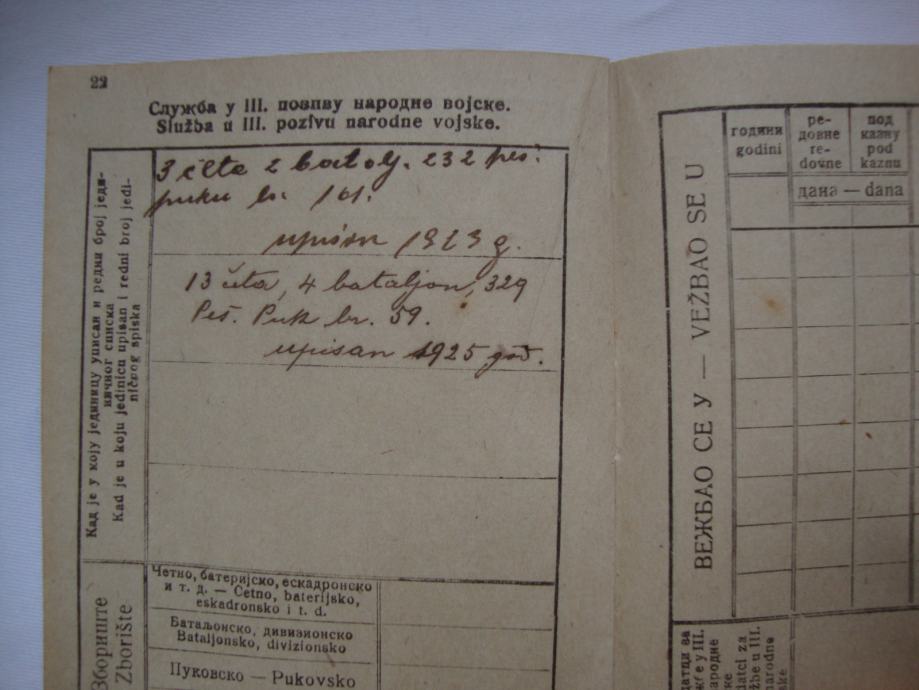 22
Служба у III. позиву народне војске.
Služba u III. pozivu narodne vojske.
Кад је у коју јединицу уписан и редни број једи-
ничног списка
Kad je u koju jedinicu upisan i redni broj jedi-
ničnog spiska
3 četa 2 batalj. 232 peš.
puku br. 161.
upisan 1923 g.
13 četa, 4 bataljon, 329
Peš. Puk br. 59.
upisan 1925 god.
Збориште
Zborište
Четно, батеријско, ескадронско
и т. д. — Četno, baterijsko,
eskadronsko i t. d.
Батаљонско, дивизионско
Bataljonsko, divizionsko
Пуковско — Pukovsko
ВЕЖБАО СЕ У — VEŽBAO SE U
години
godini
ре-
довне
re-
dovne
под
казну
pod
kaznu
дана — dana